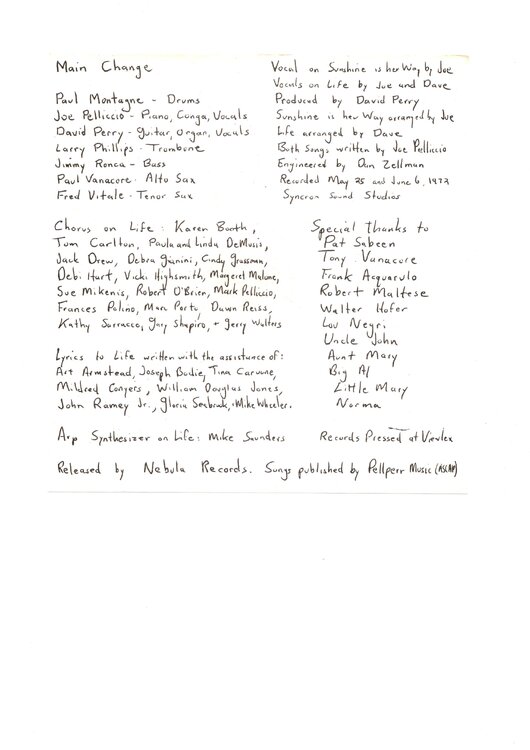 Main Change
Paul Montagne - Drums
Joe Pelliccio - Piano, Conga, Vocals
David Perry - Guitar, Organ, Vocals
Larry Phillips - Trombone
Jimmy Ronca - Bass
Paul Vanacore - Alto Sax
Fred Vitale - Tenor Sax
Vocal on Sunshine is her Way by Joe
Vocals on Life by Joe and Dave
Produced by David Perry
Sunshine is her Way arranged by Joe
Life arranged by Dave
Both Songs written by Joe Pelliccio
Engineered by Dan Zellman
Recorded May 25 and June 6, 1973
Syncron Sound Studios
Chorus on Life: Karen Booth,
Tom Carlton, Paula and Linda DeMusis,
Jack Drew, Debra Gianini, Cindy Grossman,
Debi Hart, Vicki Highsmith, Margaret Malone,
Sue Mikenis, Robert O'Brien, Mark Pelliccio,
Frances Polino, Mari Porto, Dawn Reiss,
Kathy Sorracco, Gary Shapiro, + Jerry Walters
Lyrics to Life written with the assistance of:
Art Armstead, Joseph Bodie, Tina Carvone,
Mildred Conyers, William Douglas Jones,
John Ramey Jr., Gloria Seabrook, + Mike Wheeler.
Arp Synthesizer on Life: Mike Saunders
Special Thanks to
Pat Sabeen
Tony Vanacore
Frank Acquarulo
Robert Maltese
Walter Hofer
Lou Negri
Uncle John
Aunt Mary
Big Al
Little Mary
Norma
Records Pressed at Viewlex
Released by Nebula Records. Songs published by Pellperr Music (ASCAP)